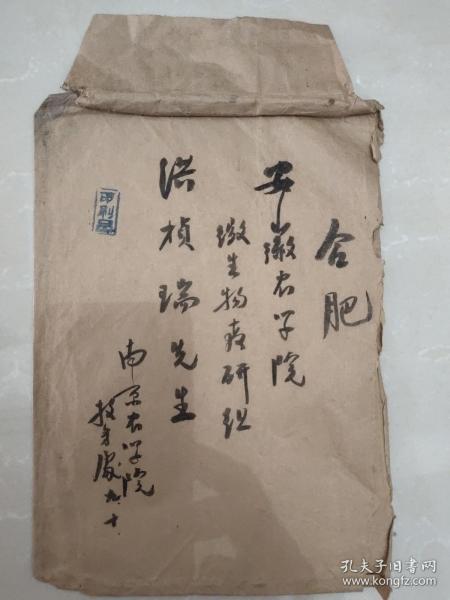 合肥
安徽农学院
微生物教研组
洪桢瑞先生
南京农学院
九.十
印刷品
孔夫子旧书网
www.kongfz.com